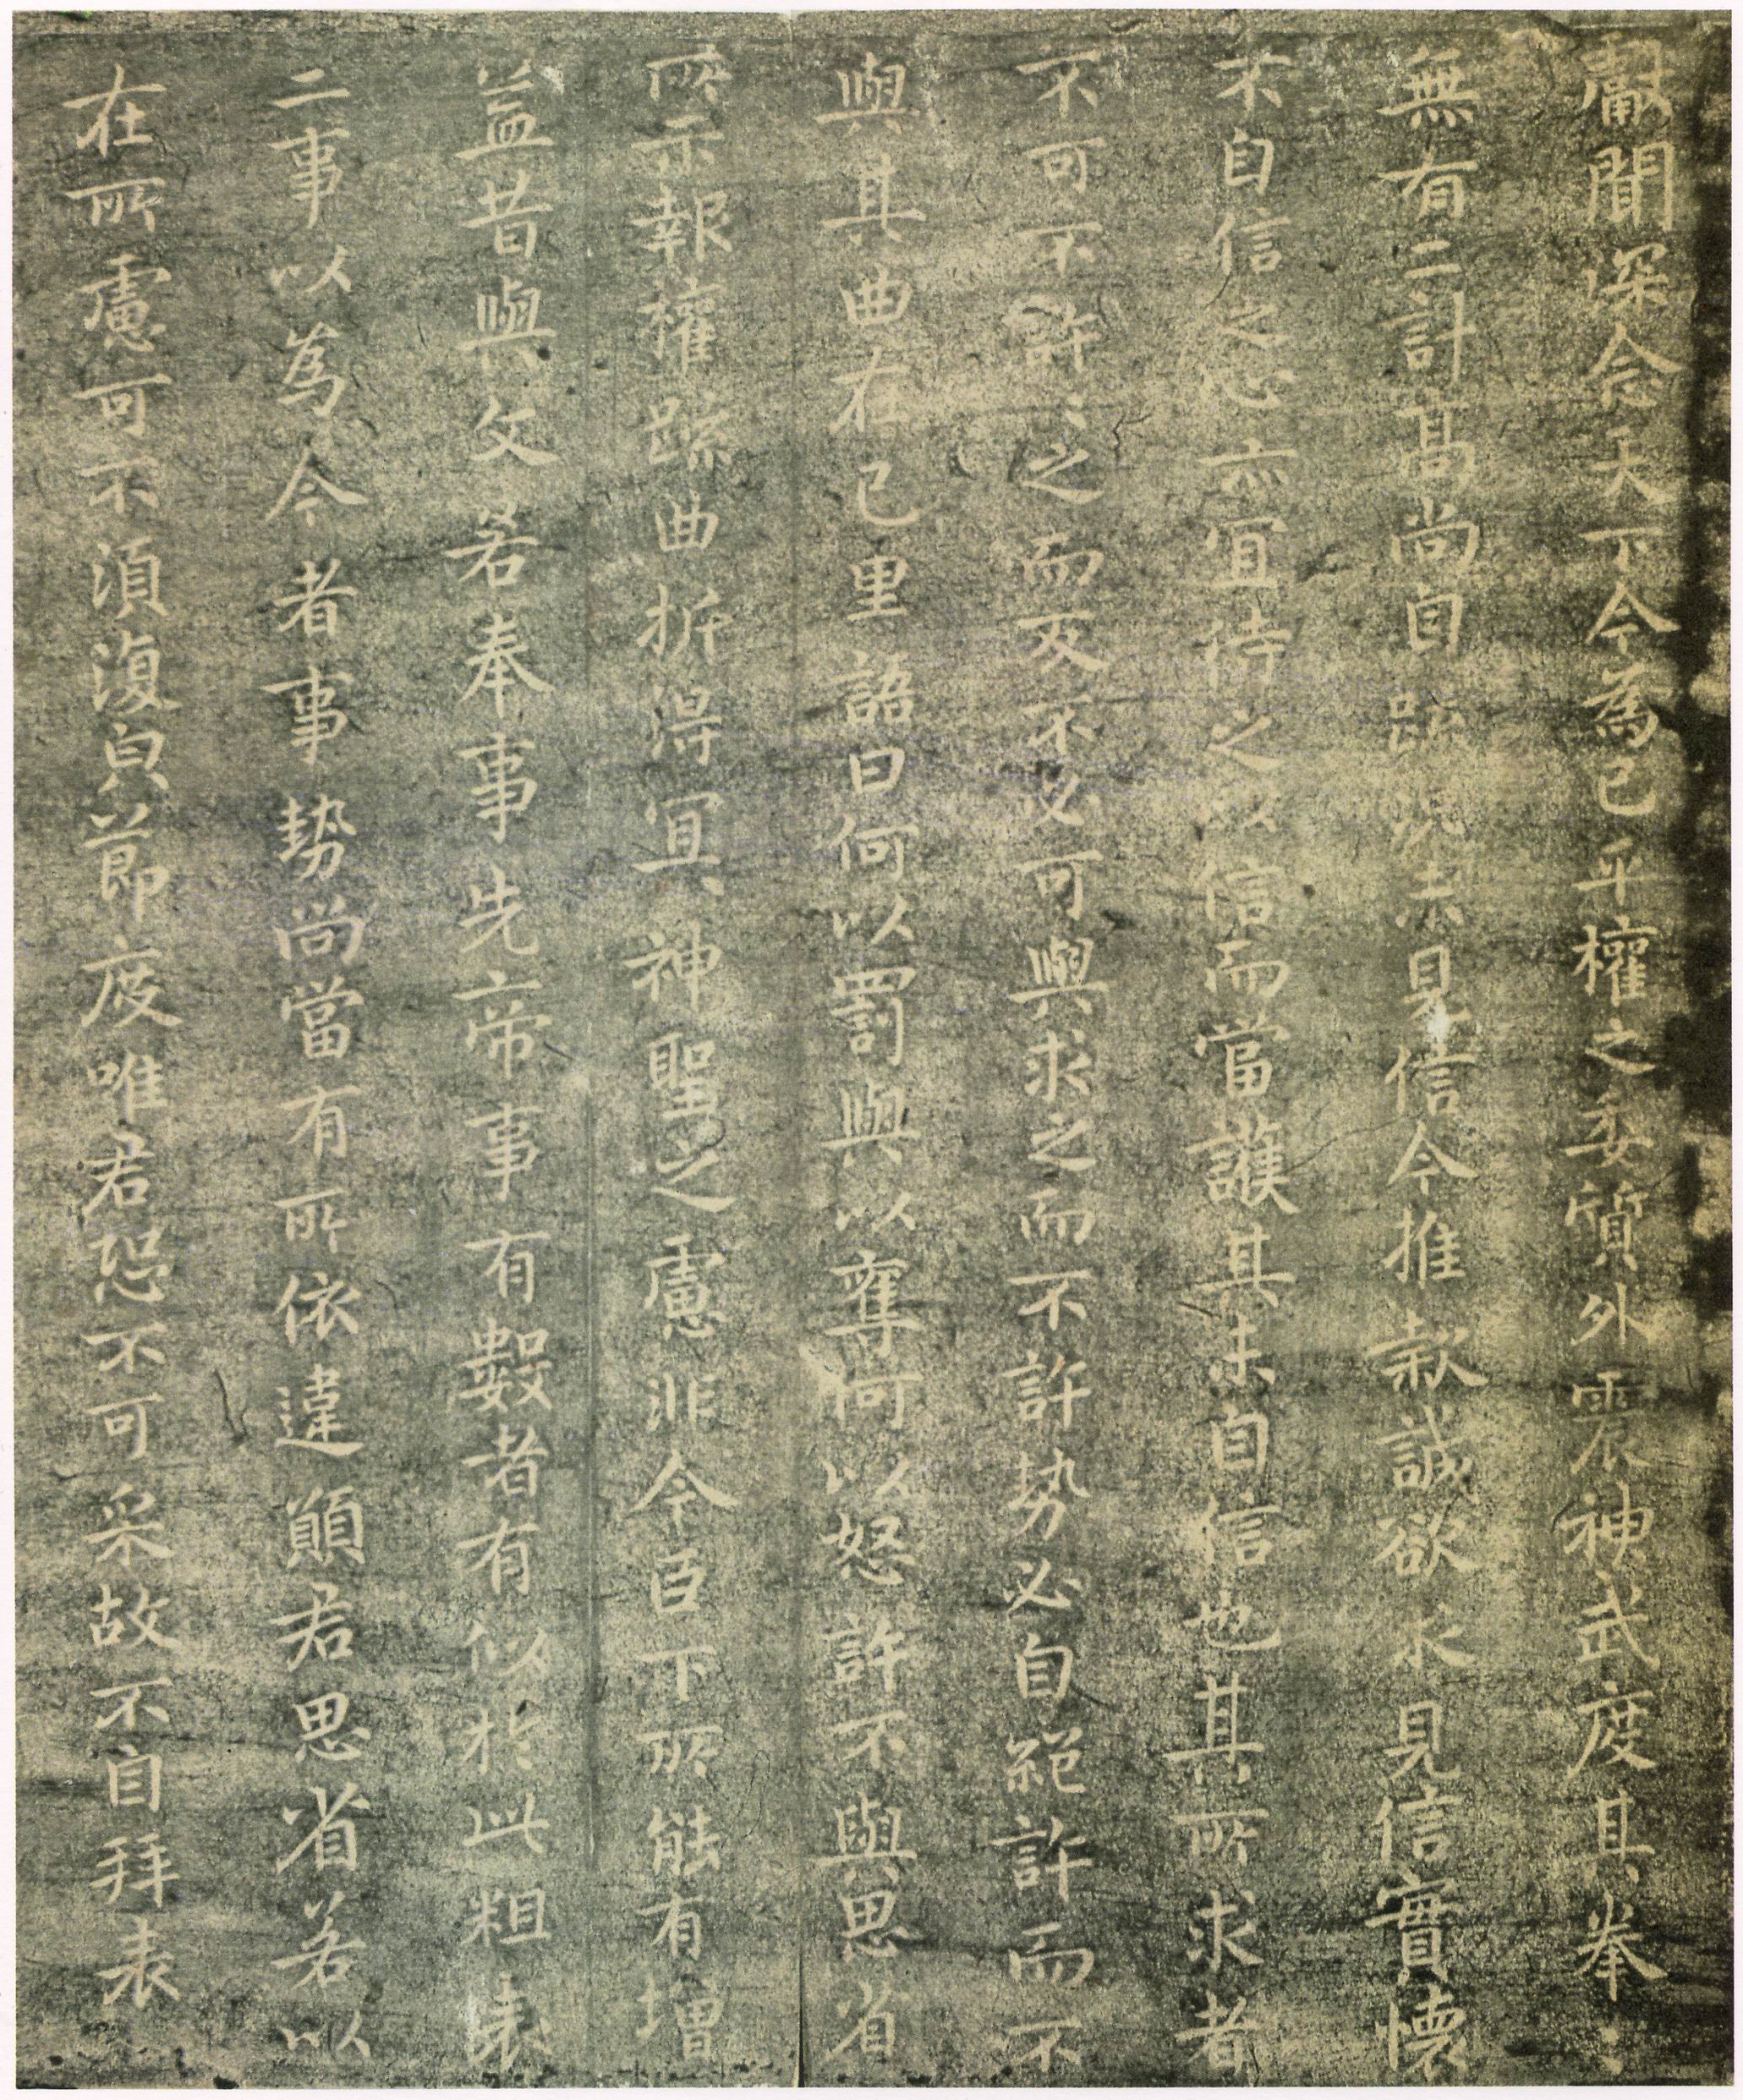 獻聞深念天下今為已平權之委質外震神武度其拳〻
無有二計高尚自疏况未見信今推款誠欲求見信實懷
不自信之心亦宜待之以信而當護其未自信也其所求者
不可不許〻之而反不必可與求之而不許勢必自絕許而不
與其曲在己里語曰何以罰與以奪何以怒許不與思省
所示報權疏曲折得宜神聖之慮非今臣下所能有增
益昔與文若奉事先帝事有數者有似於此粗表
二事以為今者事勢尚當有所依違願君思省若以
在所慮可不須復皃節度唯君恐不可采故不自拜表